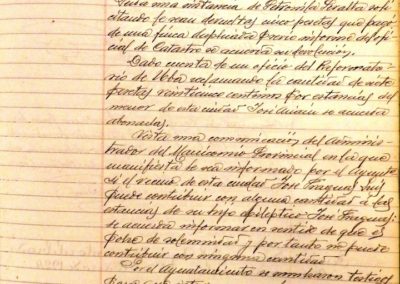 Leida una instancia de Petronila Peralta soli-
citando le sean devueltas cinco pesetas que pagó
de una finca duplicada previo informe del ofi-
cial de Catastro se acuerda su devolución.
Dado cuenta de un oficio del Reformato-
rio de Oba reclamando la cantidad de siete
pesetas veinticinco centimos por estancias del
menor de esta ciudad José se acuerda
abonarlas.
Vista una comunicación del Adminis-
trador del Manicomio Provincial en la que
manifiesta le sea informado por el Ayunto
si el vecino de esta ciudad José Fraguas
puede contribuir con alguna cantidad a las
estancias de su hijo epiléptico José Fraguas:
se acuerda informar en sentido de que es
pobre de solemnidad y por tanto no puede
contribuir con ninguna cantidad.
Por el Ayuntamiento se nombraron testigos